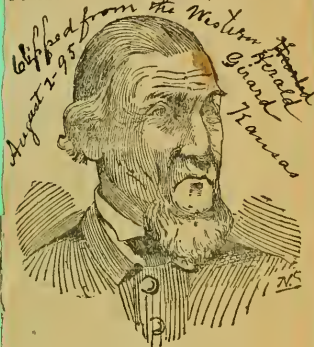 Clipped from the Western Herald
Girard
Kansas
August 2-95
N.S